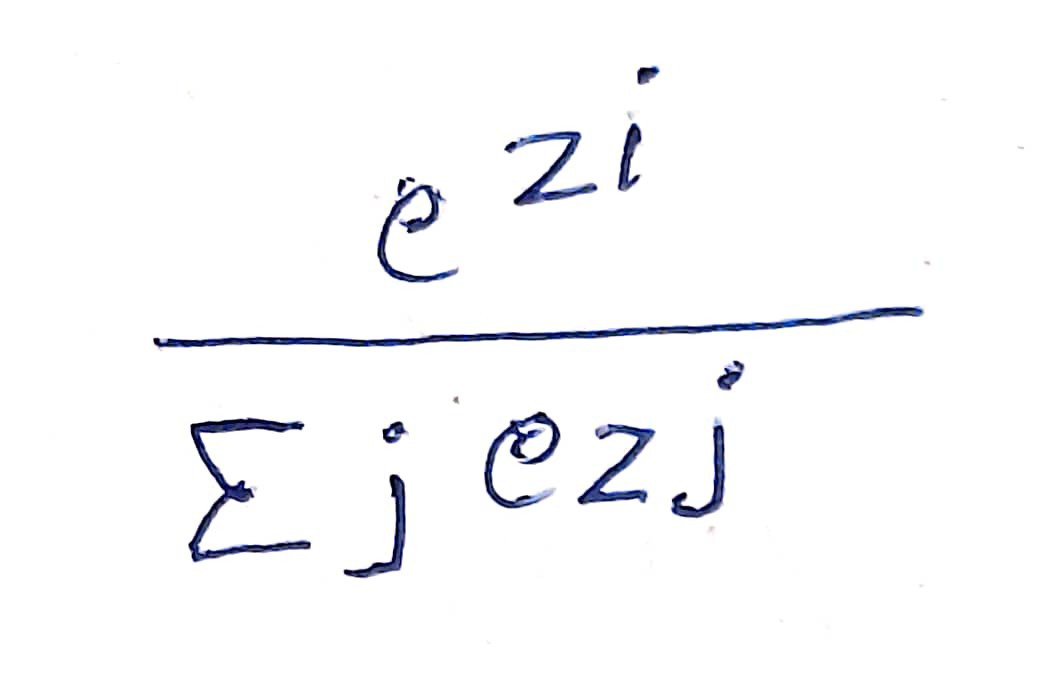 e^{zi}
Σ j ezj